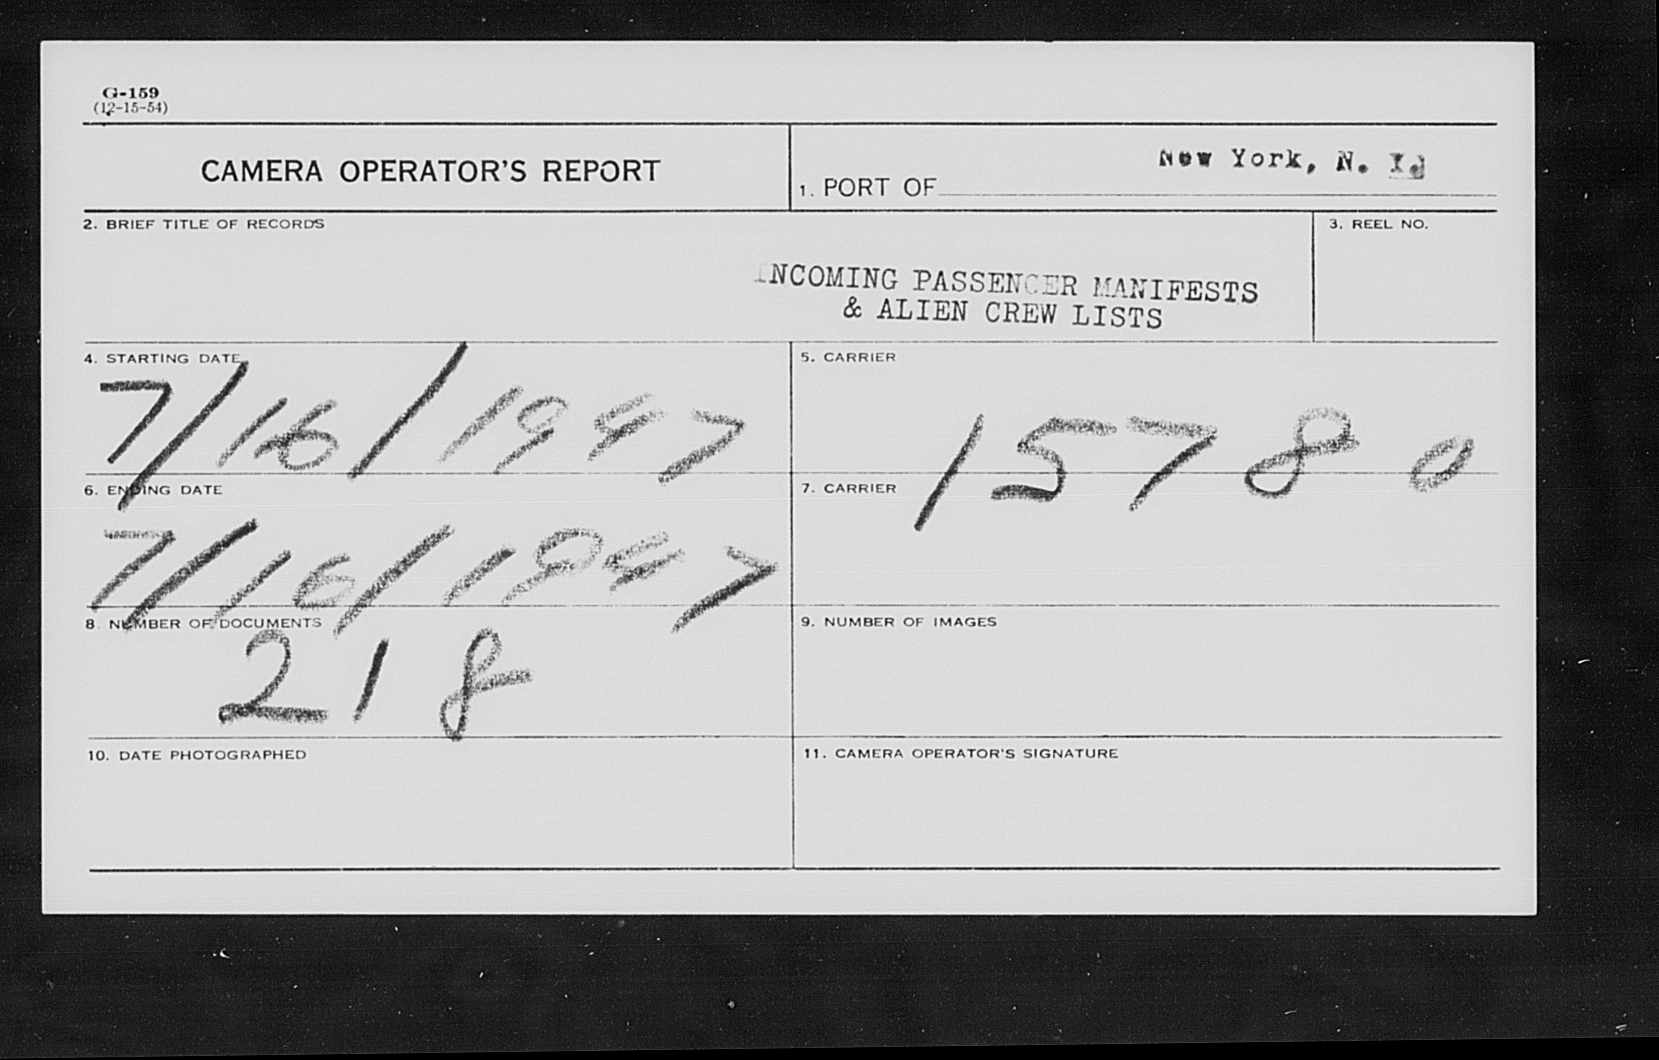 G-159
(12-15-54)
CAMERA OPERATOR'S REPORT
1. PORT OF New York, N. Y.
2. BRIEF TITLE OF RECORDS
3. REEL NO.
INCOMING PASSENGER MANIFESTS
& ALIEN CREW LISTS
4. STARTING DATE
7/16/1947
5. CARRIER
15780
6. ENDING DATE
7/16/1947
7. CARRIER
8. NUMBER OF DOCUMENTS
218
9. NUMBER OF IMAGES
10. DATE PHOTOGRAPHED
11. CAMERA OPERATOR'S SIGNATURE